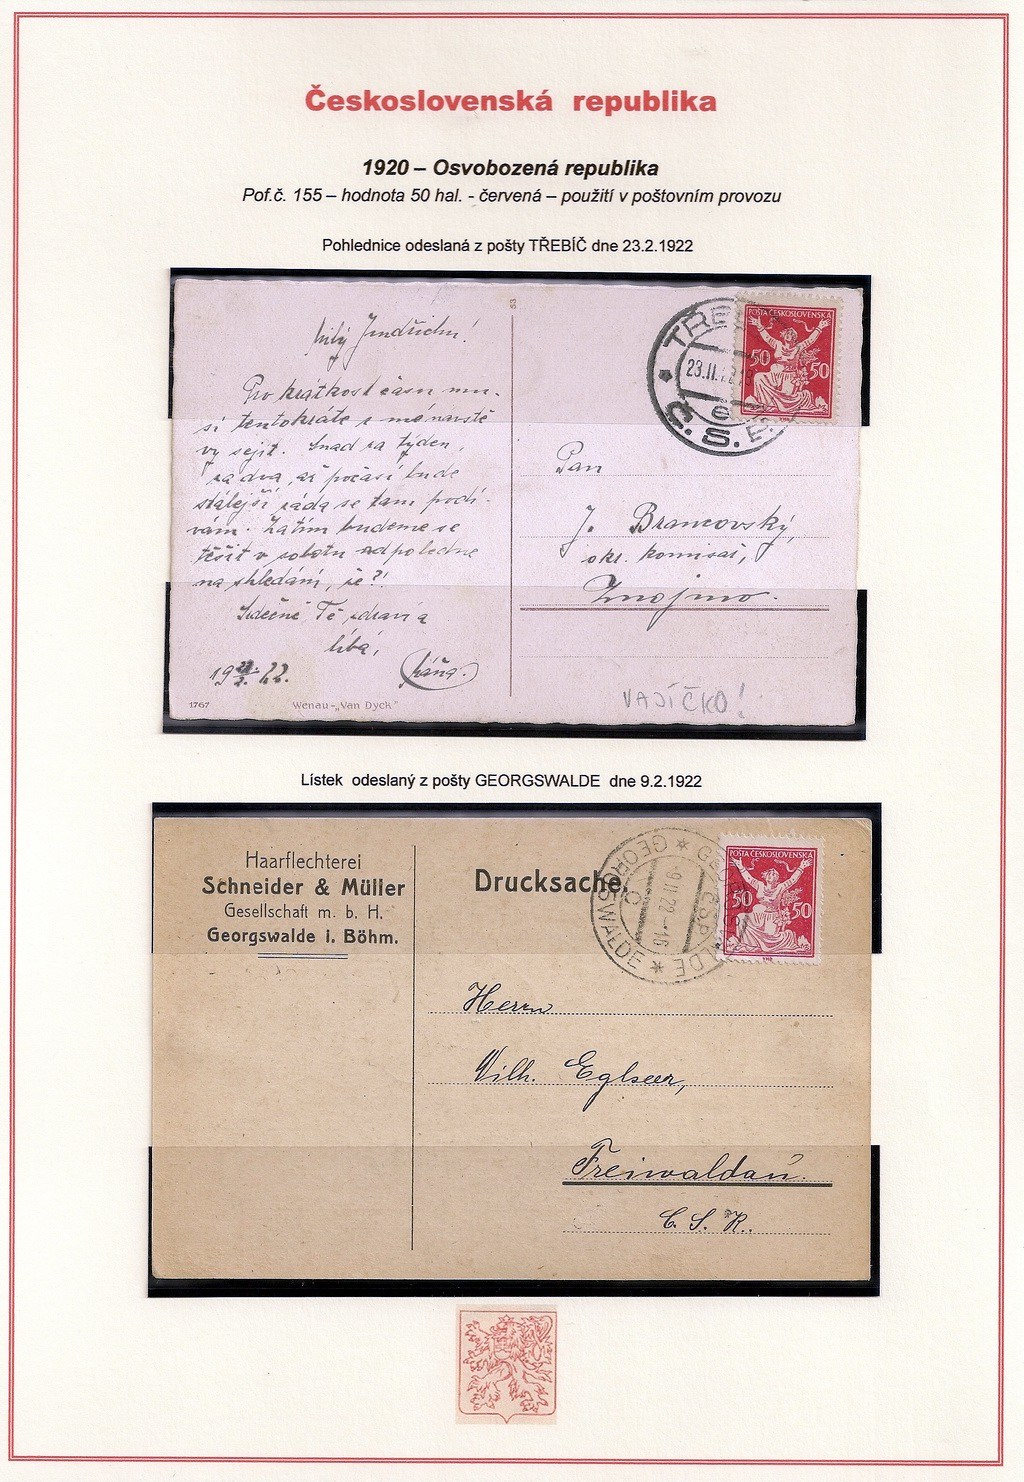 Československá republika
1920 – Osvobozená republika
Pof.č. 155 – hodnota 50 hal. - červená – použití v poštovním provozu
Pohlednice odeslaná z pošty TŘEBÍČ dne 23.2.1922
53
Milý Jindřichu!
Pro krátkost času mu-
sí tentokráte s
vy sejít. Snad za týden,
za dva, až počasí bude
stálejší ráda se tam podí-
vám. Zatím budeme se
těšit v sobotu odpoledne
na shledání, že?!
Srdečně Tě zdraví a
líbá,
Máňa.
22.
1767
Wenau-„Van Dyck"
TŘE
23.II.
Č.S.
POŠTA ČESKOSLOVENSKÁ
50 50
Pan
J. Brancovský,
okr. komisař,
Znojmo.
VAJÍČKO!
Lístek odeslaný z pošty GEORGSWALDE dne 9.2.1922
Haarflechterei
Schneider & Müller
Gesellschaft m. b. H.
Georgswalde i. Böhm.
Drucksache.
GEORGSWALDE
9.II.22-16
ČSP
POŠTA ČESKOSLOVENSKÁ
50 50
Herrn
Wilh. Eglseer,
Freiwaldau.
C. S. R.